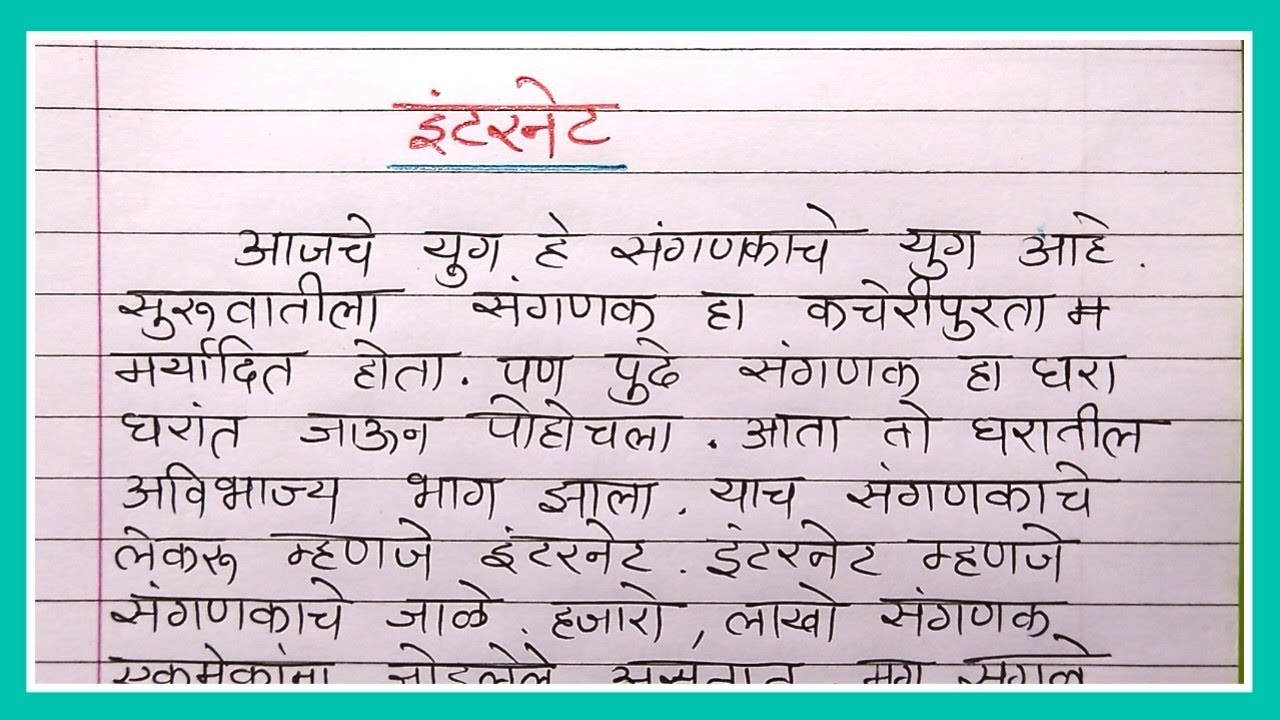 इंटरनेट
आजचे युग हे संगणकाचे युग आहे.
सुरूवातीला संगणक हा कचेरीपुरता म
मर्यादित होता. पण पुढे संगणक हा घरा
घरांत जाऊन पोहोचला. आता तो घरातील
अविभाज्य भाग झाला. याच संगणकाचे
लेकरू म्हणजे इंटरनेट. इंटरनेट म्हणजे
संगणकाचे जाळे. हजारो, लाखो संगणक
एकमेकांना जोडलेले असतात. मग सगळे